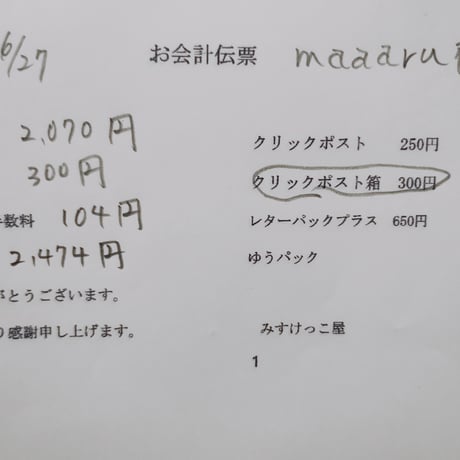 6/27 お会計伝票 maaaru
2,070円
300円
数料 104円
2,474円
とうございます。
感謝申し上げます。
クリックポスト 250円
クリックポスト箱 300円
レターパックプラス 650円
ゆうパック
みすけっこ屋
1